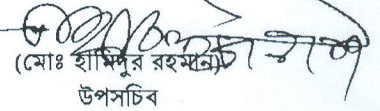 (মোঃ হামিদুর রহমান)
উপসচিব